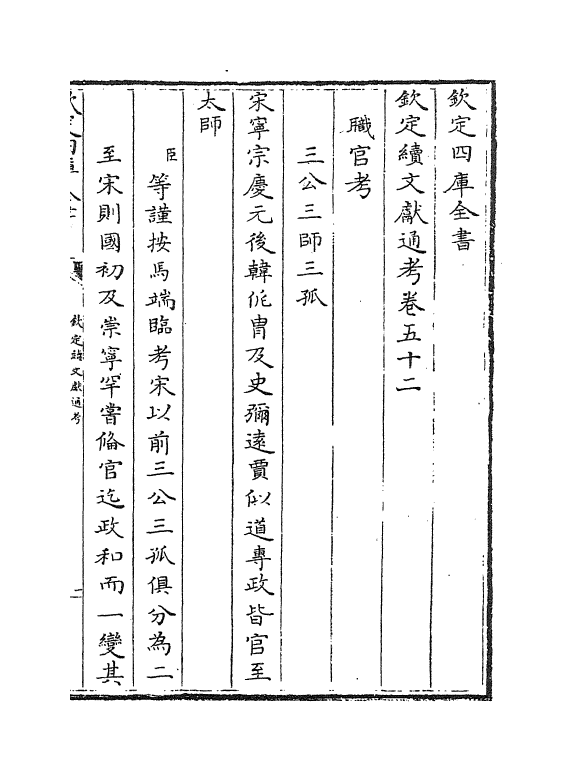 欽定四庫全書
欽定續文獻通考卷五十二
職官考
三公三師三孤
宋寧宗慶元後韓侂胄及史彌遠賈似道專政皆官至
太師
臣等謹按馬端臨考宋以前三公三孤俱分為二
至宋則國初及崇寧罕嘗俻官迄政和而一變其
欽定續文獻通考